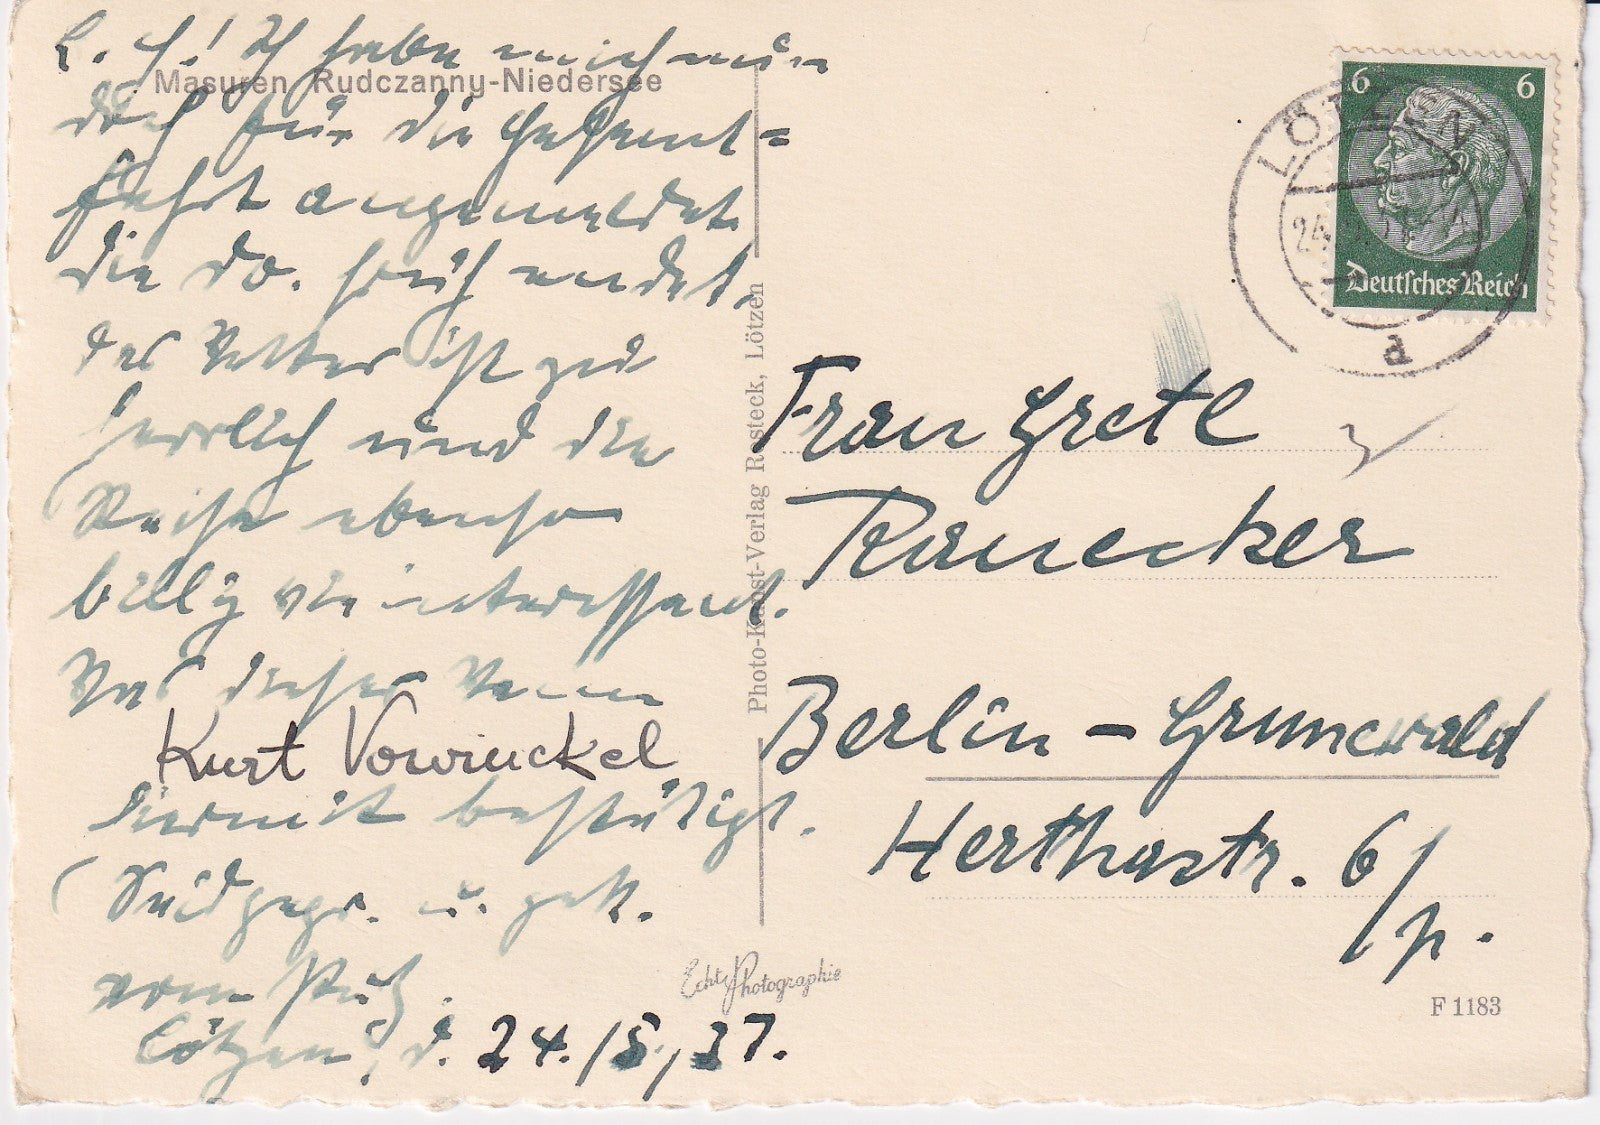 L. H.! Ich habe mich nun
Masuren Rudczanny-Niedersee
doch für die Gesamt=
fahrt angemeldet
die Do. früh endet.
das Wetter ist zu
herrlich und die
Reise ebenso
billig wie interessant.
Was dieser Mann
Kurt Vowinckel
hiermit bestätigt.
vom Putz.
Lötzen, d. 24./8./37.
Photo-Kunst-Verlag Rosteck, Lötzen
Echte Photographie
6 6
Deutsches Reich
LÖTZEN
24.
Frau Gretl
Ranecker
Berlin-Grunewald
Herthastr. 6/p.
F 1183